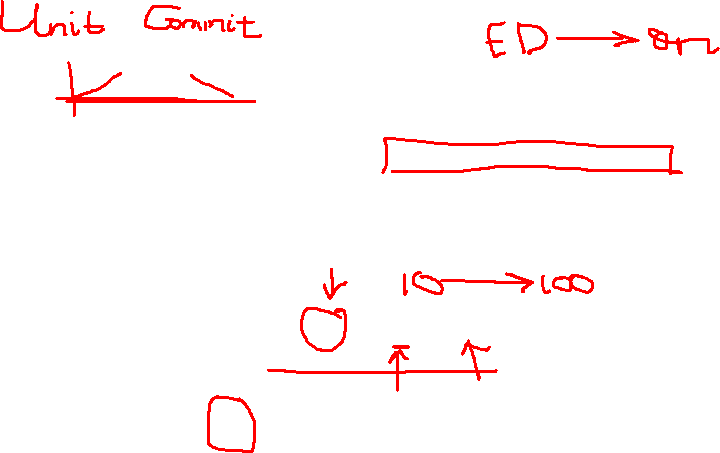 Unit Commit
ED → on
10 → 100